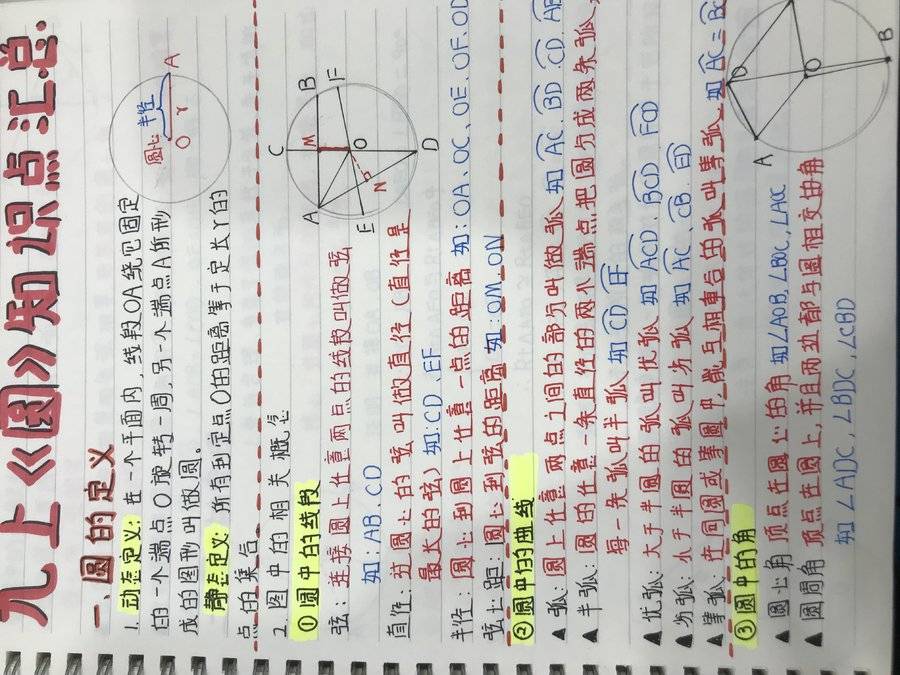 九上《圆》知识点汇总
一、圆的定义
1. 动态定义: 在一个平面内, 线段OA绕它固定
的一个端点O旋转一周, 另一个端点A所形
成的图形叫做圆。
静态定义: 所有到定点O的距离等于定长r的
点的集合
圆心 半径
O r A
2. 图中的相关概念
① 圆中的线段
弦: 连接圆上任意两点的线段叫做弦
如: AB、CD
直径: 过圆心的弦叫做直径 (直径是
最长的弦) 如: CD、EF
半径: 圆心到圆上任意一点的距离 如: OA、OC、OE、OF、OD
弦心距: 圆心到弦的距离 如: OM、ON
C B F
M O
A E N D
② 圆中的曲线
▲ 弧: 圆上任意两点之间的部分叫做弧 如 AC、BD、CD、
▲ 半弧: 圆的任意一条直径的两个端点把圆分成两条弧,
每一条弧叫半弧 如 CD、EF
▲ 优弧: 大于半圆的弧叫优弧 如 ACD、BCD、FCD
▲ 劣弧: 小于半圆的弧叫劣弧 如 AC、CB、ED
▲ 等弧 在同圆或等圆中, 能与相重合的弧叫等弧, 如 AC = BC
③ 圆中的角
▲ 圆心角 顶点在圆心的角 如∠AOB、∠BOC、∠AOC
▲ 圆周角 顶点在圆上, 并且两边都与圆相交的角
如 ∠ADC, ∠BDC, ∠CBD
D O B
A